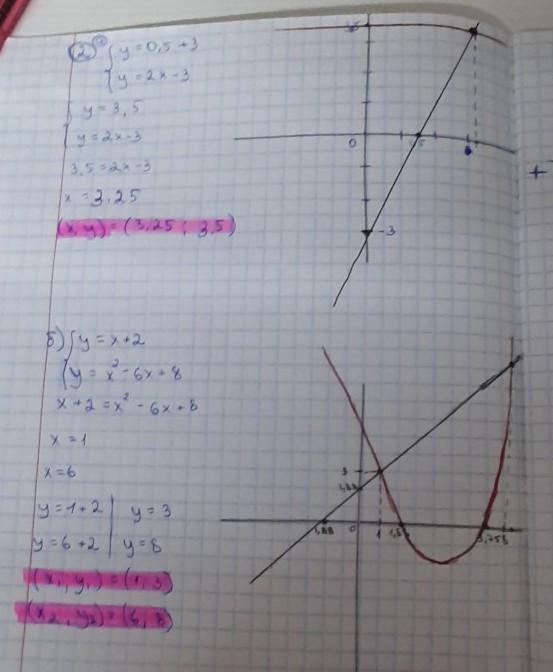 2 a) { y = 0,5 + 3
{ y = 2x - 3
{ y = 3,5
{ y = 2x - 3
3,5 = 2x - 3
x = 3,25
(x, y) = (3,25 ; 3,5)
0
-3
+
б) { y = x + 2
{ y = x² - 6x + 8
x + 2 = x² - 6x + 8
x = 1
x = 6
y = 1 + 2 | y = 3
y = 6 + 2 | y = 8
(x₁, y₁) = (1, 3)
(x₂, y₂) = (6, 8)
3
0
1